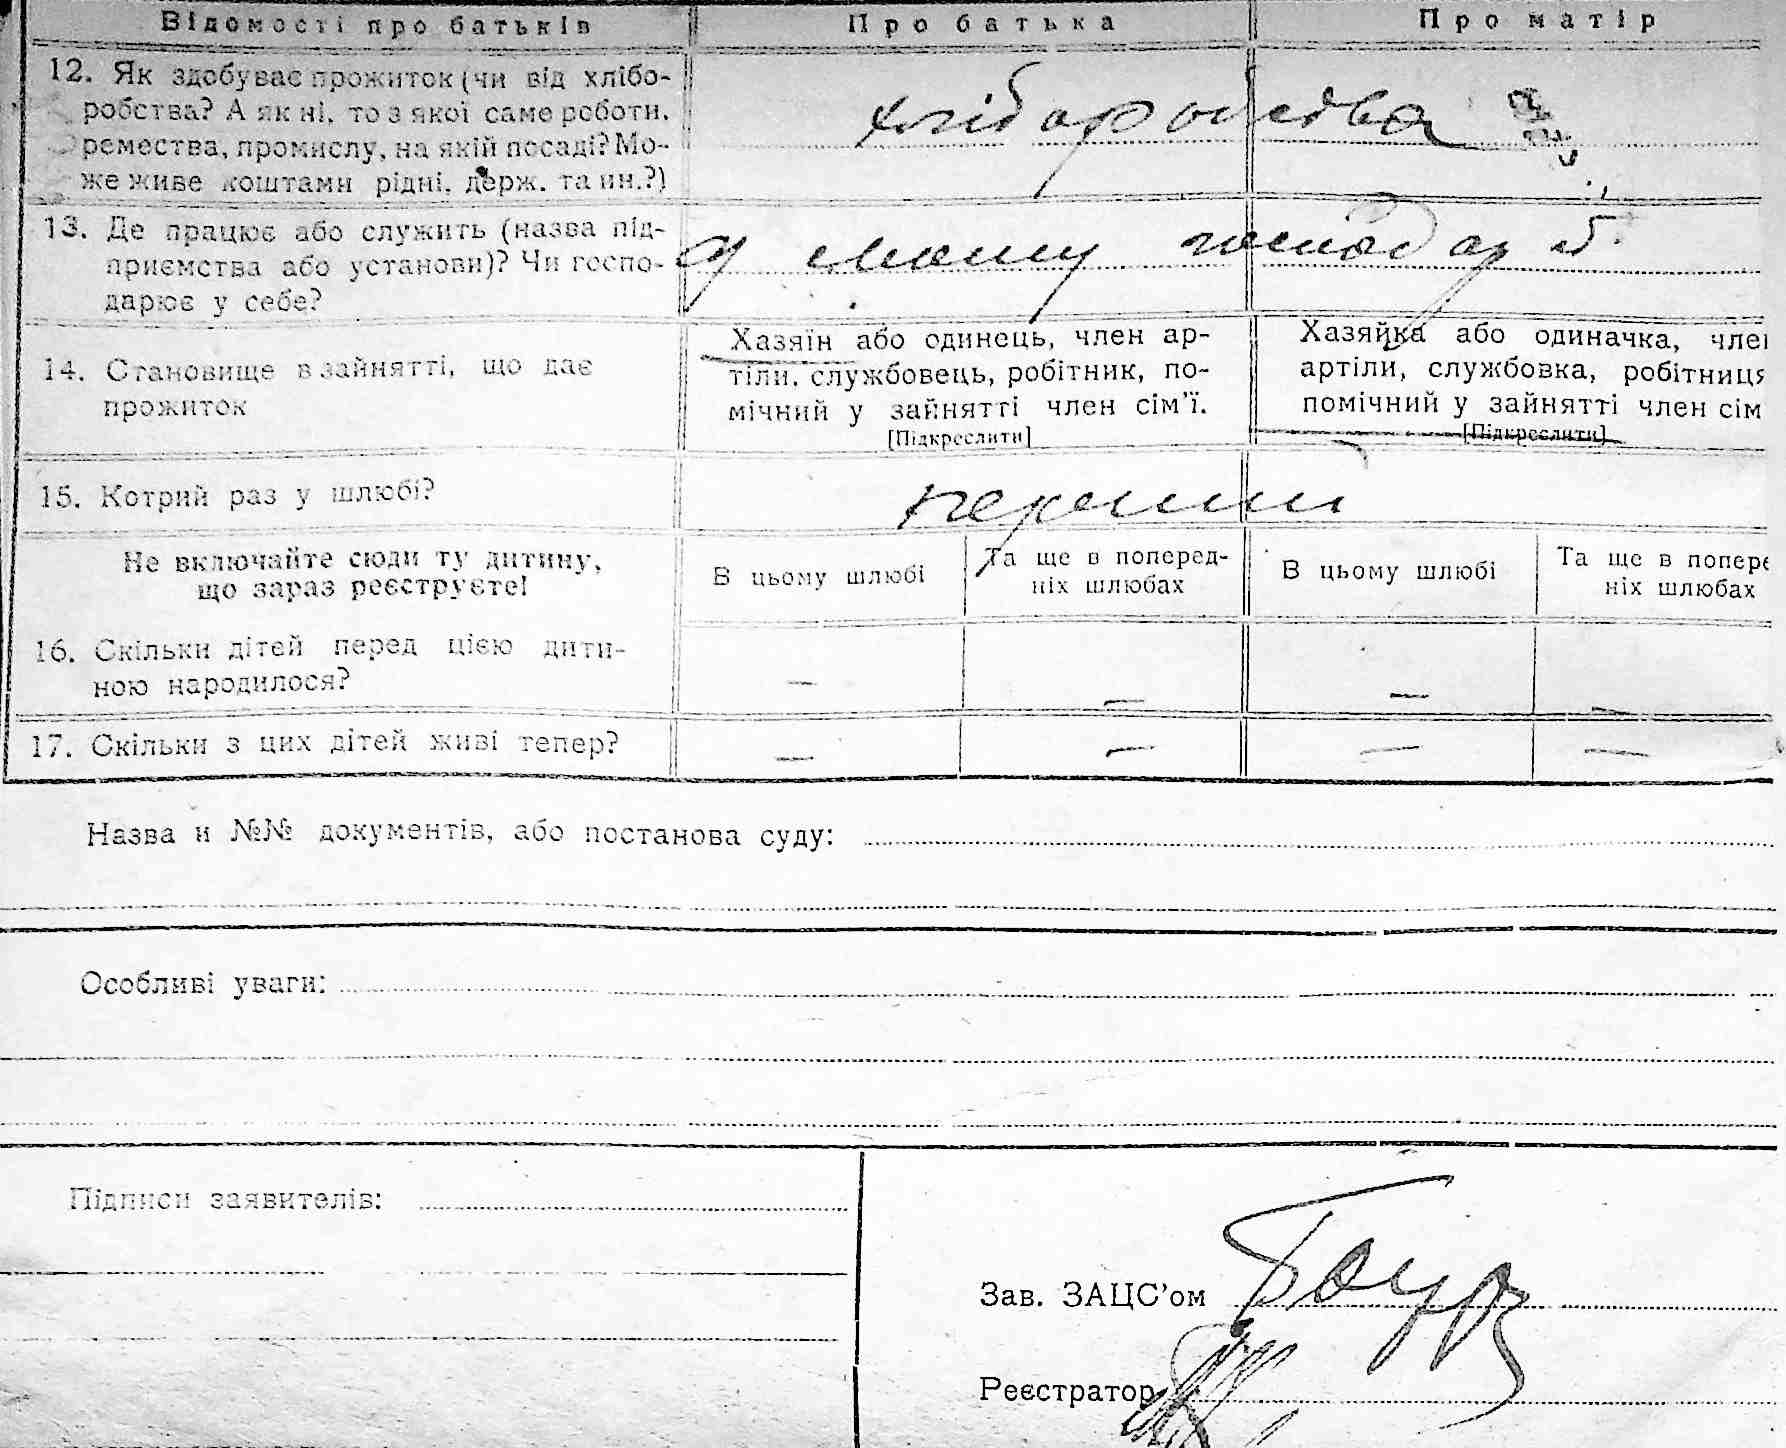 Відомості про батьків Про батька Про матір
12. Як здобуває прожиток (чи від хлібо-
робства? А як ні, то з якої саме роботи,
ремества, промислу, на якій посаді? Мо-
же живе коштами рідні, держ. та ин.?)
хліборобства
13. Де працює або служить (назва під-
приємства або установи)? Чи госпо-
дарює у себе?
у свому господар
14. Становище в зайнятті, що дає
прожиток
Хазяїн або одинець, член ар-
тіли, службовець, робітник, по-
мічний у зайнятті член сім'ї.
[Підкреслити]
Хазяйка або одиначка, член
артіли, службовка, робітниця
помічний у зайнятті член сім
[Підкреслити]
15. Котрий раз у шлюбі?
перший
Не включайте сюди ту дитину,
що зараз реєструєте!
В цьому шлюбі
Та ще в поперед-
ніх шлюбах
В цьому шлюбі
Та ще в попере
ніх шлюбах
16. Скільки дітей перед цією дити-
ною народилося?
— — — —
17. Скільки з цих дітей живі тепер?
— — — —
Назва и №№ документів, або постанова суду:
Особливі уваги:
Підписи заявителів:
Зав. ЗАЦС'ом
Реєстратор